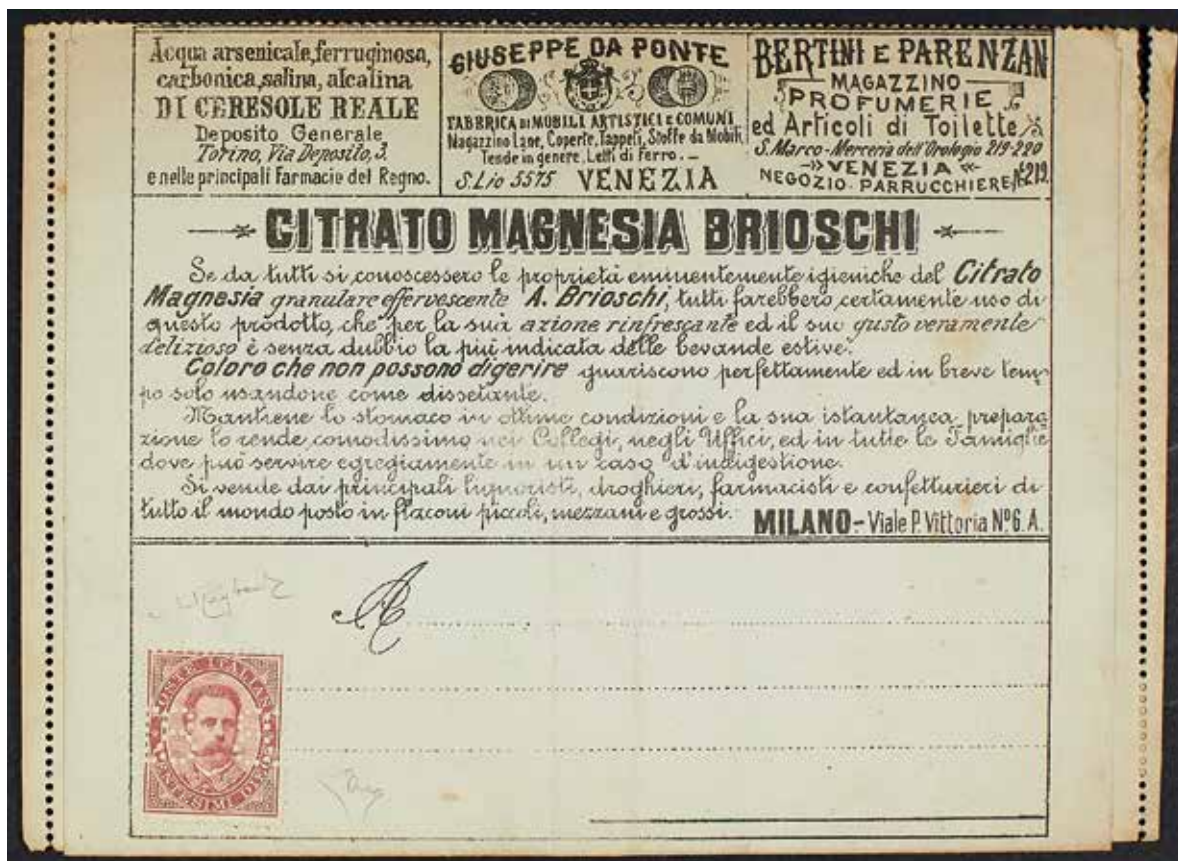 Acqua arsenicale, ferruginosa,
carbonica, salina, alcalina
DI CERESOLE REALE
Deposito Generale
Torino, Via Deposito, 3.
e nelle principali Farmacie del Regno.
GIUSEPPE DA PONTE
FABBRICA DI MOBILI ARTISTICI E COMUNI
Magazzino Lane, Coperte, Tappeti, Stoffe da Mobili,
Tende in genere, Letti di Ferro. —
S. Lio 5575 VENEZIA
BERTINI E PARENZAN
MAGAZZINO
PROFUMERIE
ed Articoli di Toilette
S. Marco - Merceria dell'Orologio 219-220
VENEZIA
NEGOZIO - PARRUCCHIERE, Nº 219.
CITRATO MAGNESIA BRIOSCHI
Se da tutti si conoscessero le proprietà eminentemente igieniche del Citrato
Magnesia granulare effervescente A. Brioschi, tutti farebbero certamente uso di
questo prodotto, che per la sua azione rinfrescante ed il suo gusto veramente
delizioso è senza dubbio la più indicata delle bevande estive.
Coloro che non possono digerire guariscono perfettamente ed in breve tem-
po solo usandone come dissetante.
Mantiene lo stomaco in ottime condizioni e la sua istantanea prepara
zione lo rende comodissimo nei Collegi, negli Uffici, ed in tutte le Famiglie
dove può servire egregiamente in un caso d'indigestione.
Si vende dai principali liquoristi, droghieri, farmacisti e confetturieri di
tutto il mondo posto in flaconi piccoli, mezzani e grossi.
MILANO - Viale P. Vittoria Nº 6. A.
A
POSTE ITALIANE
CENTESIMI DIECI